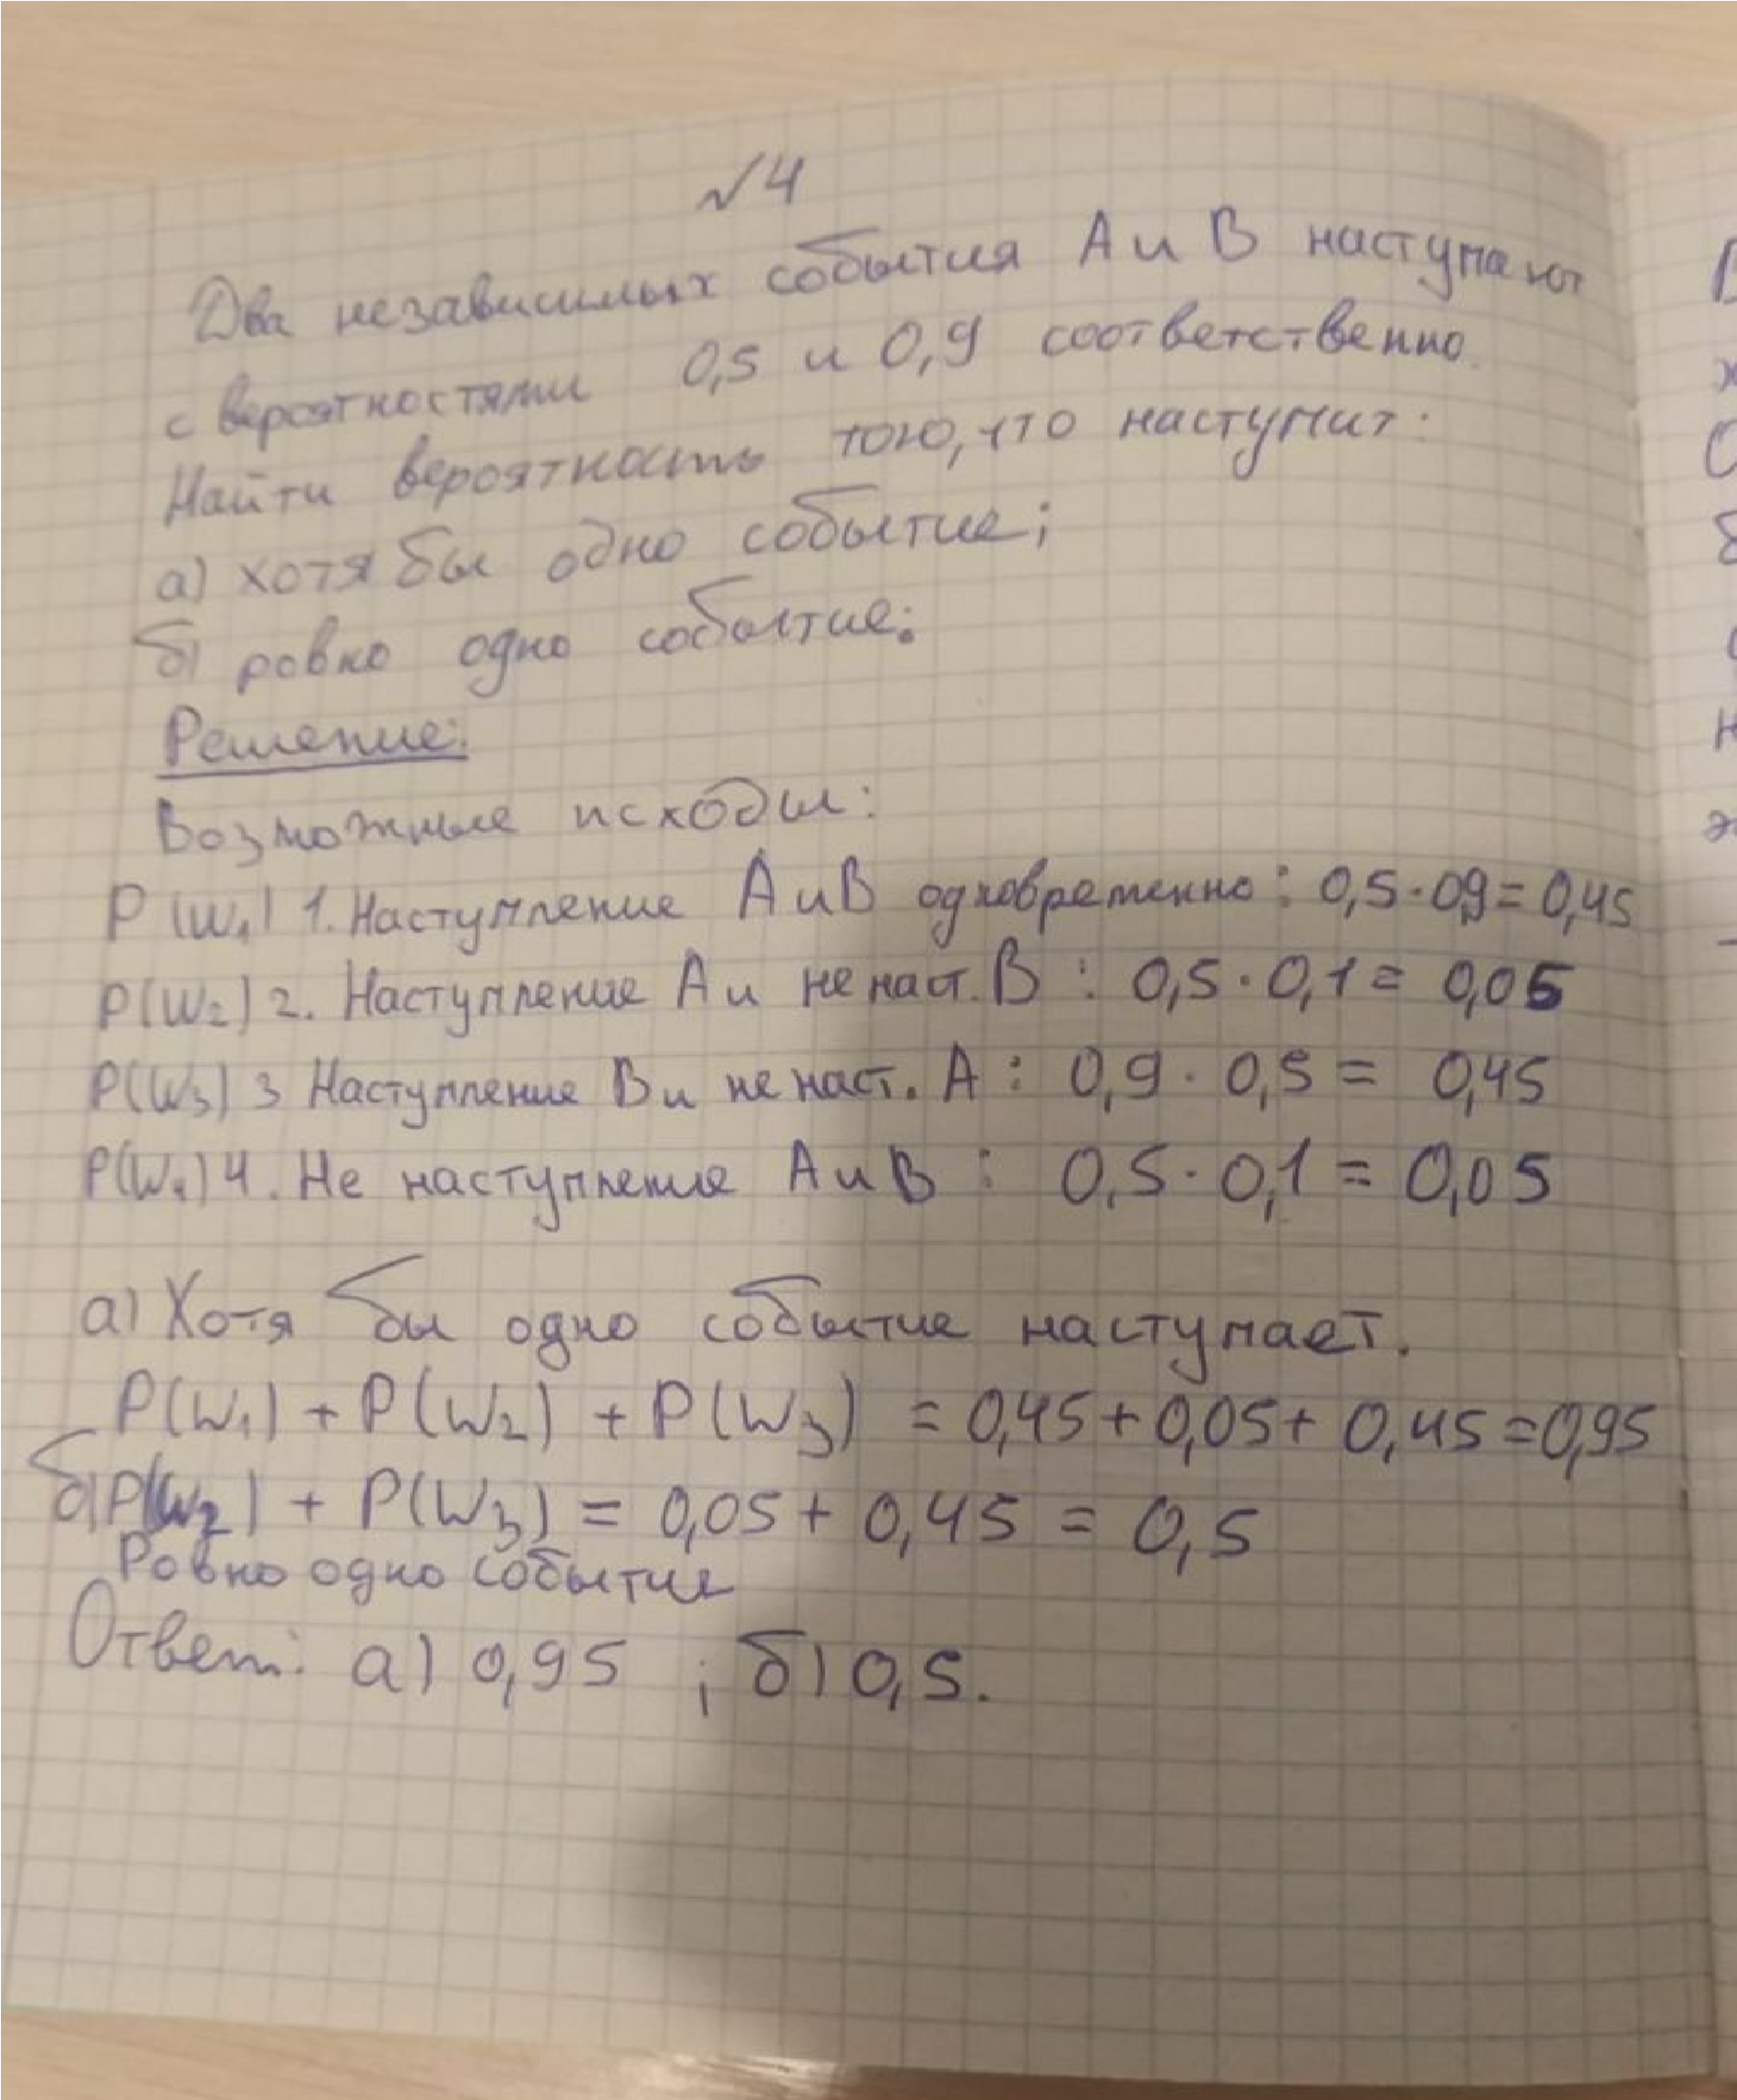 №4
Два независимых события А и В наступают
с вероятностями 0,5 и 0,9 соответственно.
Найти вероятность того, что наступит:
а) хотя бы одно событие;
б) ровно одно событие.
Решение:
Возможные исходы:
P(W₁) 1. Наступление А и В одновременно: 0,5·0,9=0,45
P(W₂) 2. Наступление А и не наст. В: 0,5·0,1=0,05
P(W₃) 3 Наступление В и не наст. А: 0,9·0,5=0,45
P(W₄) 4. Не наступление А и В: 0,5·0,1=0,05
а) Хотя бы одно событие наступает.
P(W₁)+P(W₂)+P(W₃)=0,45+0,05+0,45=0,95
б) P(W₂)+P(W₃)=0,05+0,45=0,5
Ровно одно событие
Ответ: а) 0,95 ; б) 0,5.